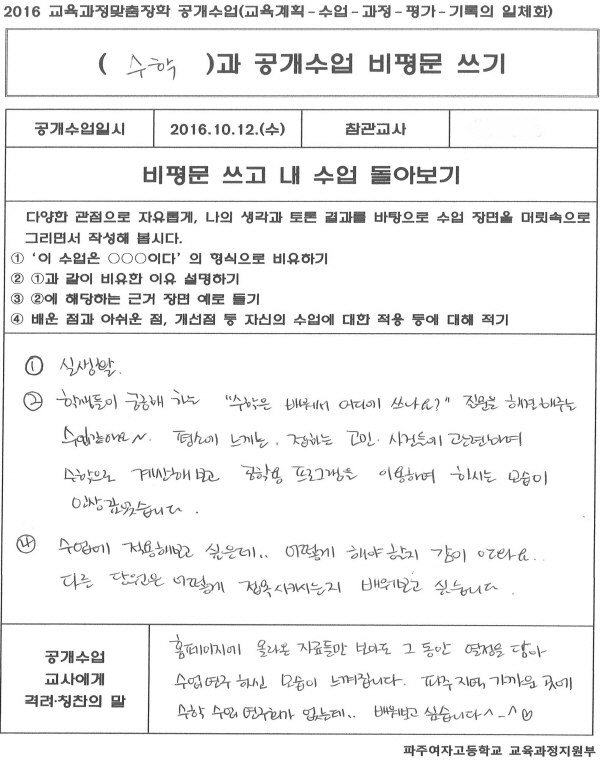 2016 교육과정맞춤장학 공개수업(교육계획-수업-과정-평가-기록의 일체화)
( 수학 )과 공개수업 비평문 쓰기
공개수업일시 2016.10.12.(수) 참관교사
비평문 쓰고 내 수업 돌아보기
다양한 관점으로 자유롭게, 나의 생각과 토론 결과를 바탕으로 수업 장면을 머릿속으로
그리면서 작성해 봅시다.
① ‘이 수업은 ○○○이다’ 의 형식으로 비유하기
② ①과 같이 비유한 이유 설명하기
③ ②에 해당하는 근거 장면 예로 들기
④ 배운 점과 아쉬운 점, 개선점 등 자신의 수업에 대한 적용 등에 대해 적기
① 실생활.
② 학생들이 궁금해 하는 "수학은 배워서 어디에 쓰나요?" 질문을 해결해주는
수업같아요~. 평소에 느끼는, 접하는 고민·사건들에 관련하여
수학으로 계산해보고 공학용 프로그램을 이용하여 하시는 모습이
인상깊었습니다.
④ 수업에 적용해보고 싶은데.. 어떻게 해야 할지 감이 안와요..
다른 단원은 어떻게 접목시키시는지 배워보고 싶습니다.
공개수업
교사에게
격려·칭찬의 말
홈페이지에 올라온 자료들만 보아도 그 동안 열정을 담아
수업연구 하신 모습이 느껴집니다. 파주지역 가까운 곳에
수학 수업 연구회가 없는데.. 배워보고 싶습니다^-^♡
파주여자고등학교 교육과정지원부